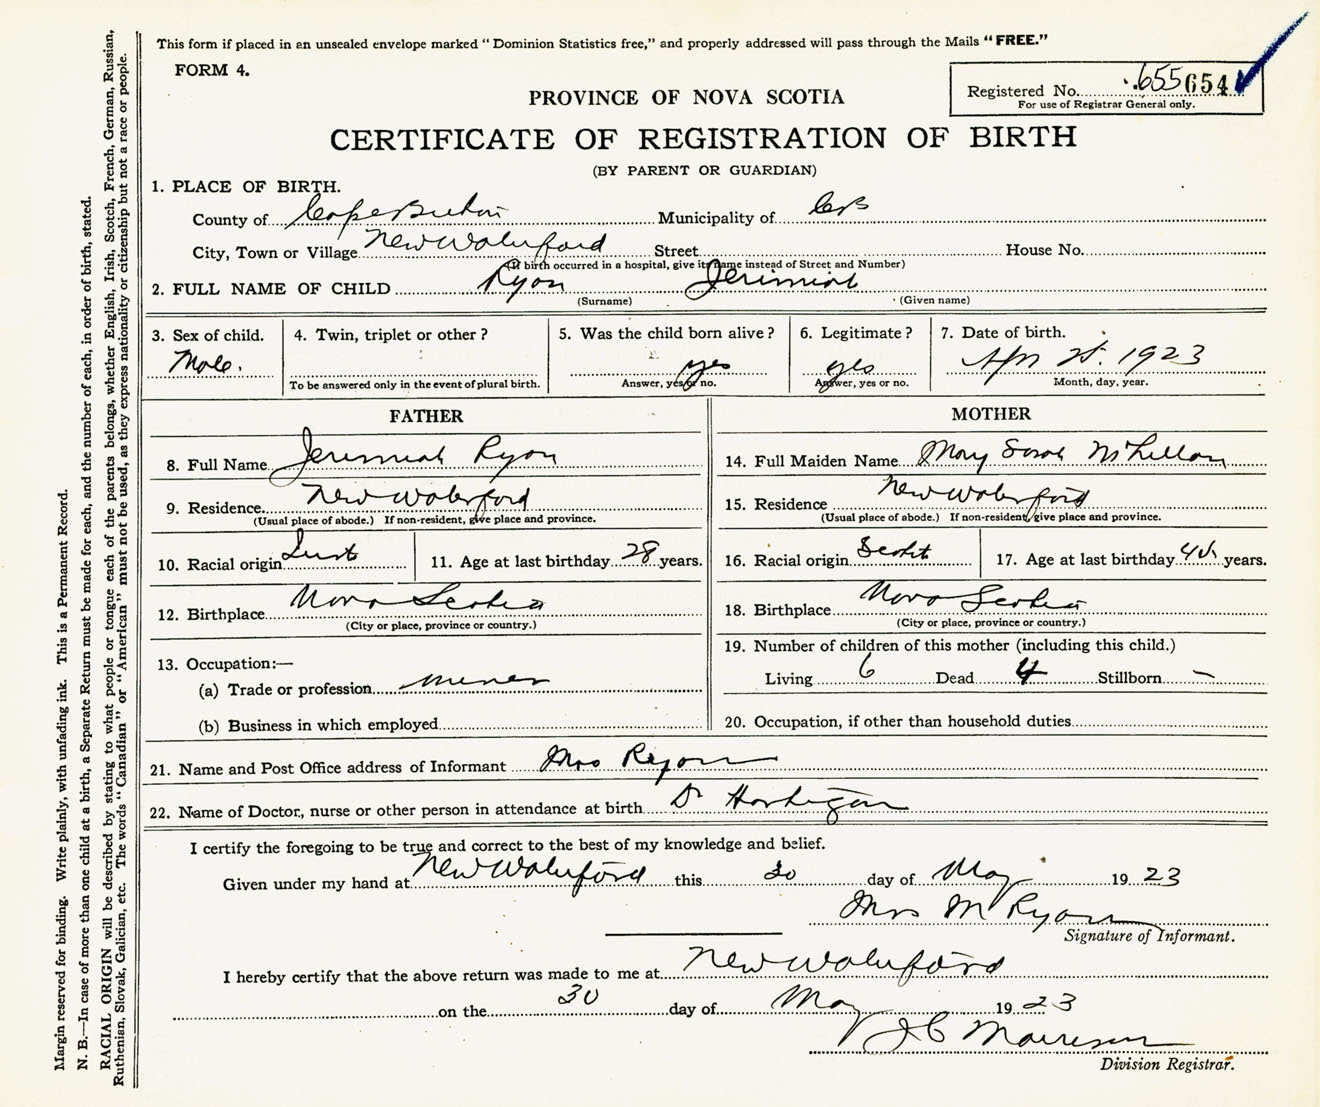 This form if placed in an unsealed envelope marked "Dominion Statistics free," and properly addressed will pass through the Mails "FREE."
FORM 4.
Registered No. 655 654
For use of Registrar General only.
PROVINCE OF NOVA SCOTIA
CERTIFICATE OF REGISTRATION OF BIRTH
(BY PARENT OR GUARDIAN)
1. PLACE OF BIRTH.
County of Cape Breton Municipality of CB
City, Town or Village New Waterford Street House No.
(If birth occurred in a hospital, give its name instead of Street and Number)
2. FULL NAME OF CHILD Ryan Jerimiah
(Surname) (Given name)
3. Sex of child. 4. Twin, triplet or other? 5. Was the child born alive? 6. Legitimate? 7. Date of birth.
Male. yes yes Apr 1923
To be answered only in the event of plural birth. Answer, yes or no. Answer, yes or no. Month, day, year.
FATHER
8. Full Name Jerimiah Ryan
9. Residence. New Waterford
(Usual place of abode.) If non-resident, give place and province.
10. Racial origin 11. Age at last birthday 28 years.
12. Birthplace Nova Scotia
(City or place, province or country.)
13. Occupation:—
(a) Trade or profession miner
(b) Business in which employed
MOTHER
14. Full Maiden Name Mary Sarah McLellan
15. Residence New Waterford
(Usual place of abode.) If non-resident, give place and province.
16. Racial origin Scotch 17. Age at last birthday years.
18. Birthplace Nova Scotia
(City or place, province or country.)
19. Number of children of this mother (including this child.)
Living 6 Dead 4 Stillborn —
20. Occupation, if other than household duties
21. Name and Post Office address of Informant Mrs Ryan
22. Name of Doctor, nurse or other person in attendance at birth Dr Hartigan
I certify the foregoing to be true and correct to the best of my knowledge and belief.
Given under my hand at New Waterford this 30 day of May 1923
Mrs M Ryan
Signature of Informant.
I hereby certify that the above return was made to me at New Waterford
on the 30 day of May 1923
J C Morrison
Division Registrar.
Margin reserved for binding. Write plainly, with unfading ink. This is a Permanent Record.
N. B.—In case of more than one child at a birth, a Separate Return must be made for each, and the number of each, in order of birth, stated.
RACIAL ORIGIN will be described by stating to what people or tongue each of the parents belongs, whether English, Irish, Scotch, French, German, Russian,
Ruthenian, Slovak, Galician, etc. The words "Canadian" or "American" must not be used, as they express nationality or citizenship but not a race or people.